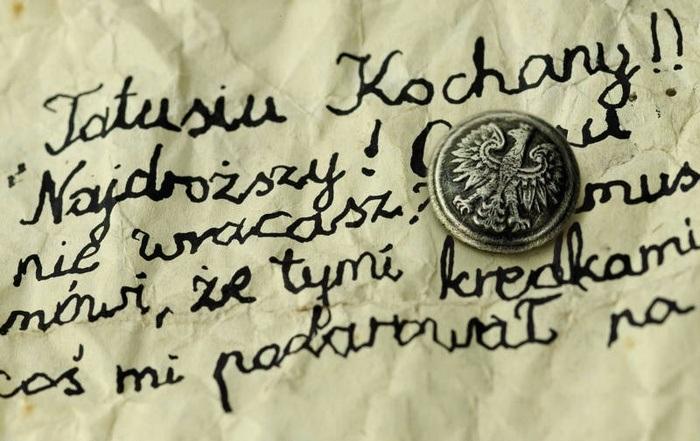 Tatusiu Kochany!!
Najdroższy!
nie wracasz? mus
mówi, że tymi kredkami
coś mi podarował na